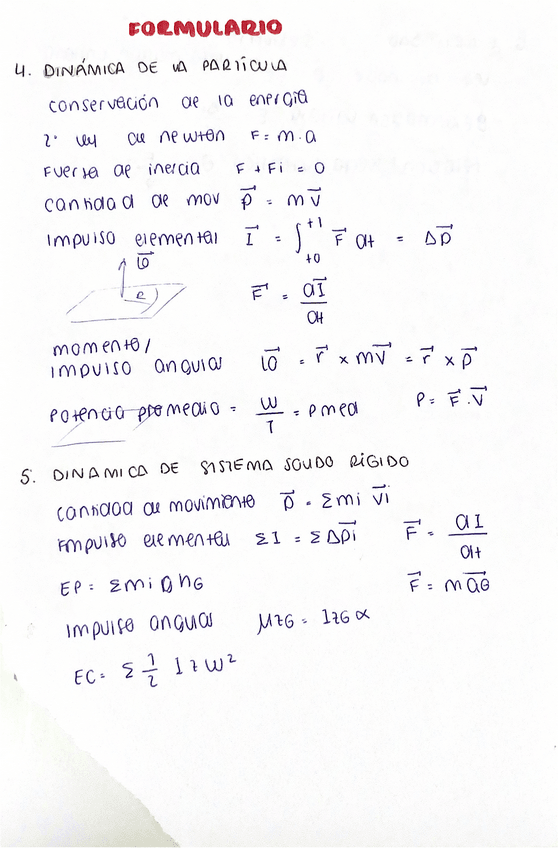 FORMULARIO
4. DINÁMICA DE LA PARTÍCULA
conservación de la energía
2ª ley de newton F = m.a
Fuerza de inercia F + Fi = 0
cantidad de mov p⃗ = m v⃗
impulso elemental I⃗ = ∫_{t0}^{t1} F⃗ dt = Δp⃗
l⃗o
F⃗ = dI⃗/dt
momento/
impulso angular l⃗o = r⃗ × mv⃗ = r⃗ × p⃗
potencia promedio = W/T = Pmed P = F⃗ . v⃗
5. DINAMICA DE SISTEMA SOLIDO RÍGIDO
cantidad de movimiento p⃗ = Σmi v⃗i
Impulso elemental ΣI = ΣΔp⃗i F⃗ = dI/dt
EP = Σmi g hG F⃗ = m a⃗G
impulso angular MzG = IzG α
EC = Σ 1/2 Iz W²